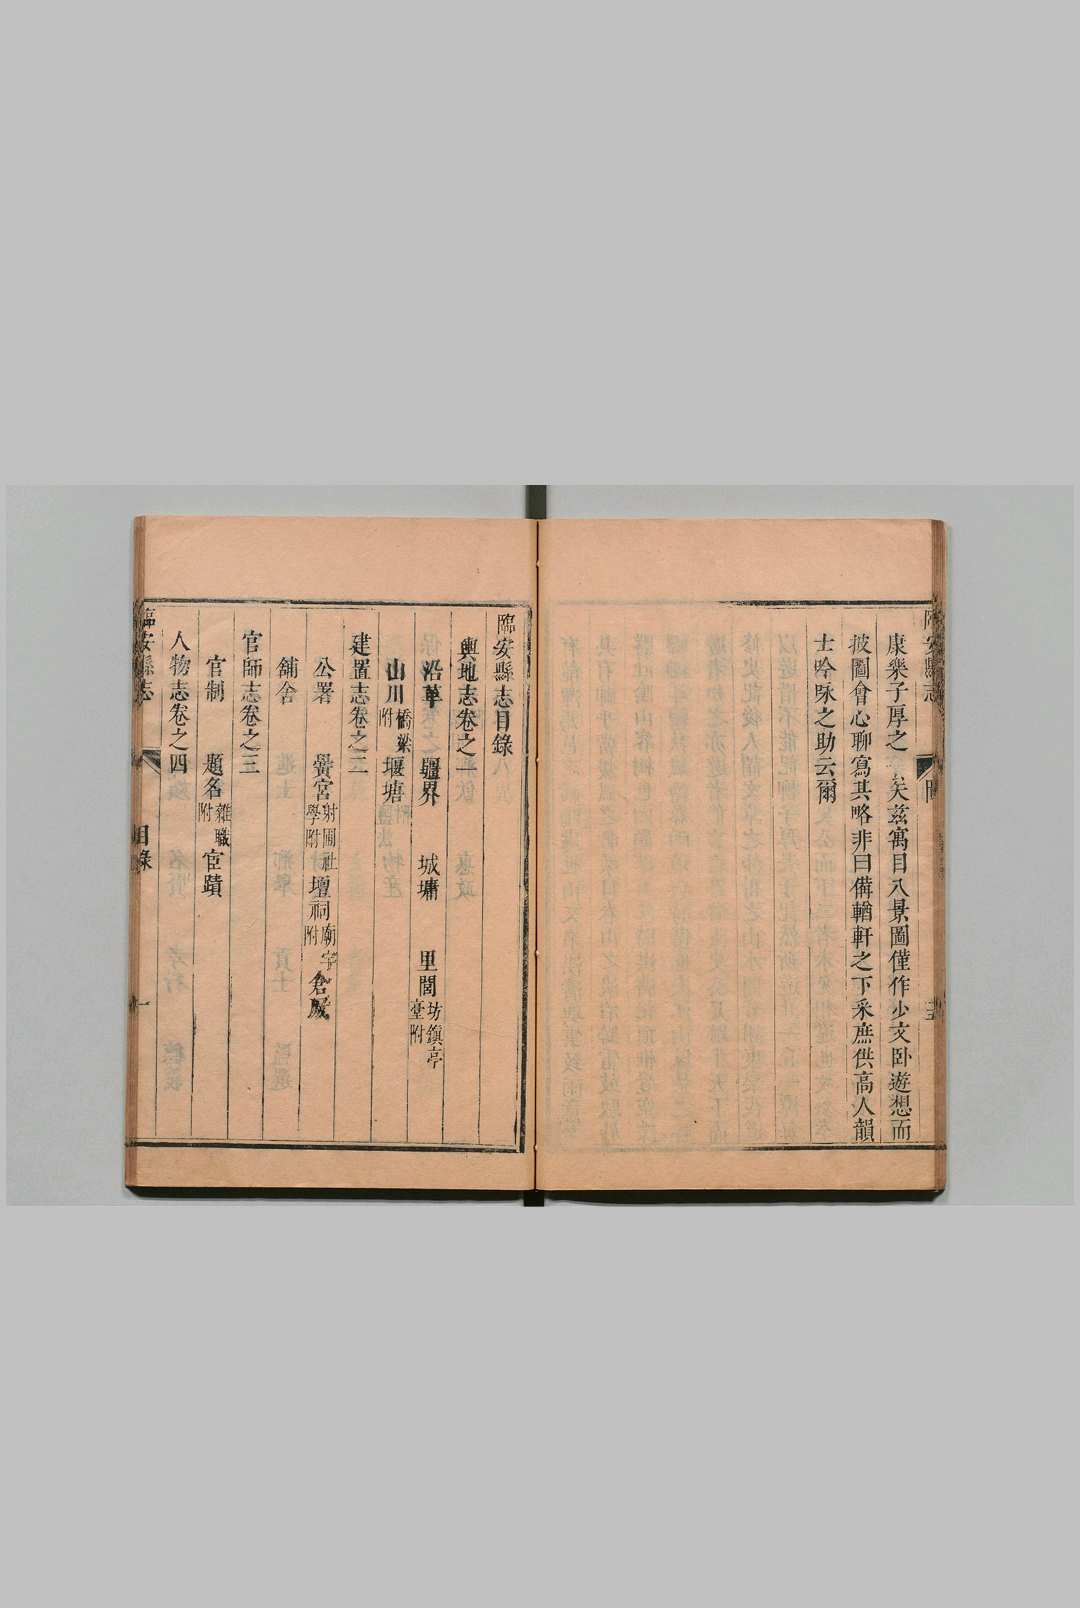 康樂子厚之矣兹寓目八景圖僅作少文卧遊想而
披圖會心聊寫其略非曰備輶軒之下采庶供高人韻
士吟咏之助云爾
安縣志
臨安縣志目錄
輿地志卷之一
沿革 疆界 城墉 里閭坊鎮亭堂附
山川橋梁附 堰塘
建置志卷之二
公署 黌宮射圃社學附 壇祠廟宇附 倉厫
舖舍
官師志卷之三
官制 題名雜職附 宦蹟
人物志卷之四
臨安縣志 目錄 一